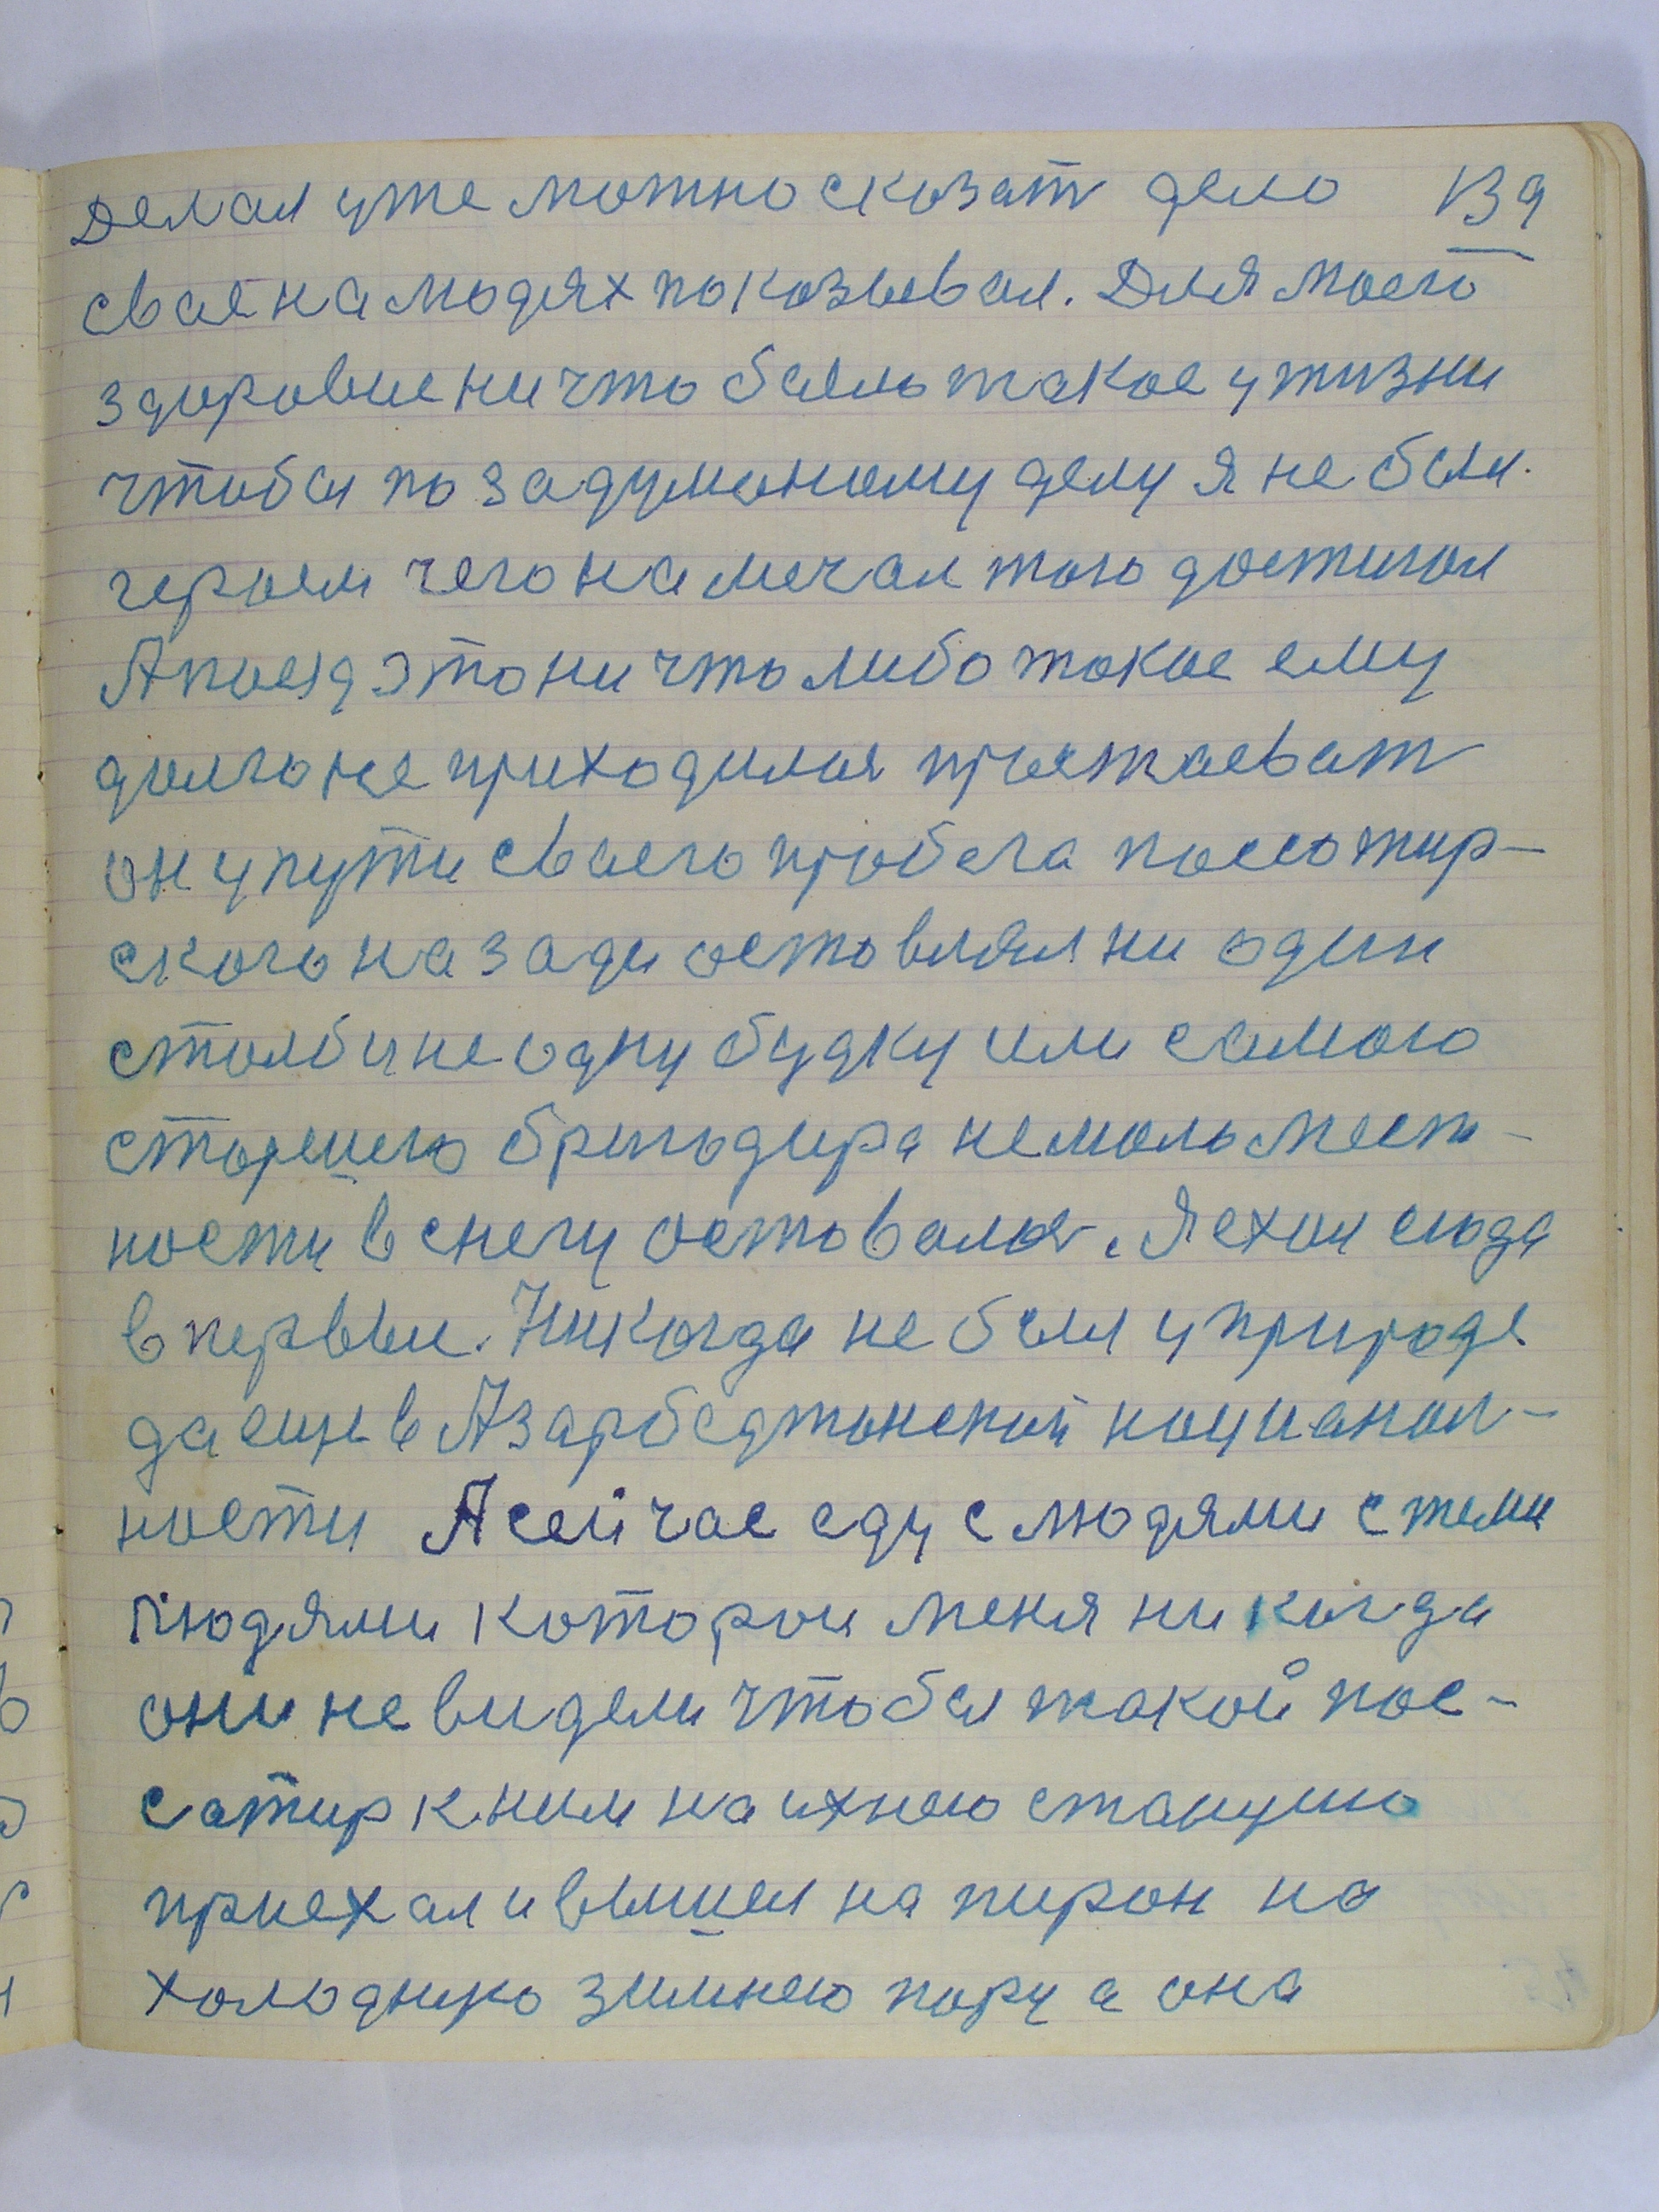 Делал уже можно сказат дело 139
свае на людях показывал. Для моего
здоровие ничто было такое у жизни
чтобы по задуманому делу я не был
героем чего намечал того достигал
А поезд это ничто либо такое ему
долго не приходился простаеват
он у пути своего пробега поссожир-
ского назади оставлял ни один
столб и не одну будку или самого
старшего бригадира немало мест-
ности в снегу оставалося. Я ехал сюда
в первые. Никогда не был у природе
да еще в Азарбеджонской национал-
ности А сейчас еду с людями с теми
людями которои меня ни когда
они не видели чтобы такой пос-
сажир к ним на ихнею станцию
приехал и вышел на пирон на
холодную зимнею пору а она